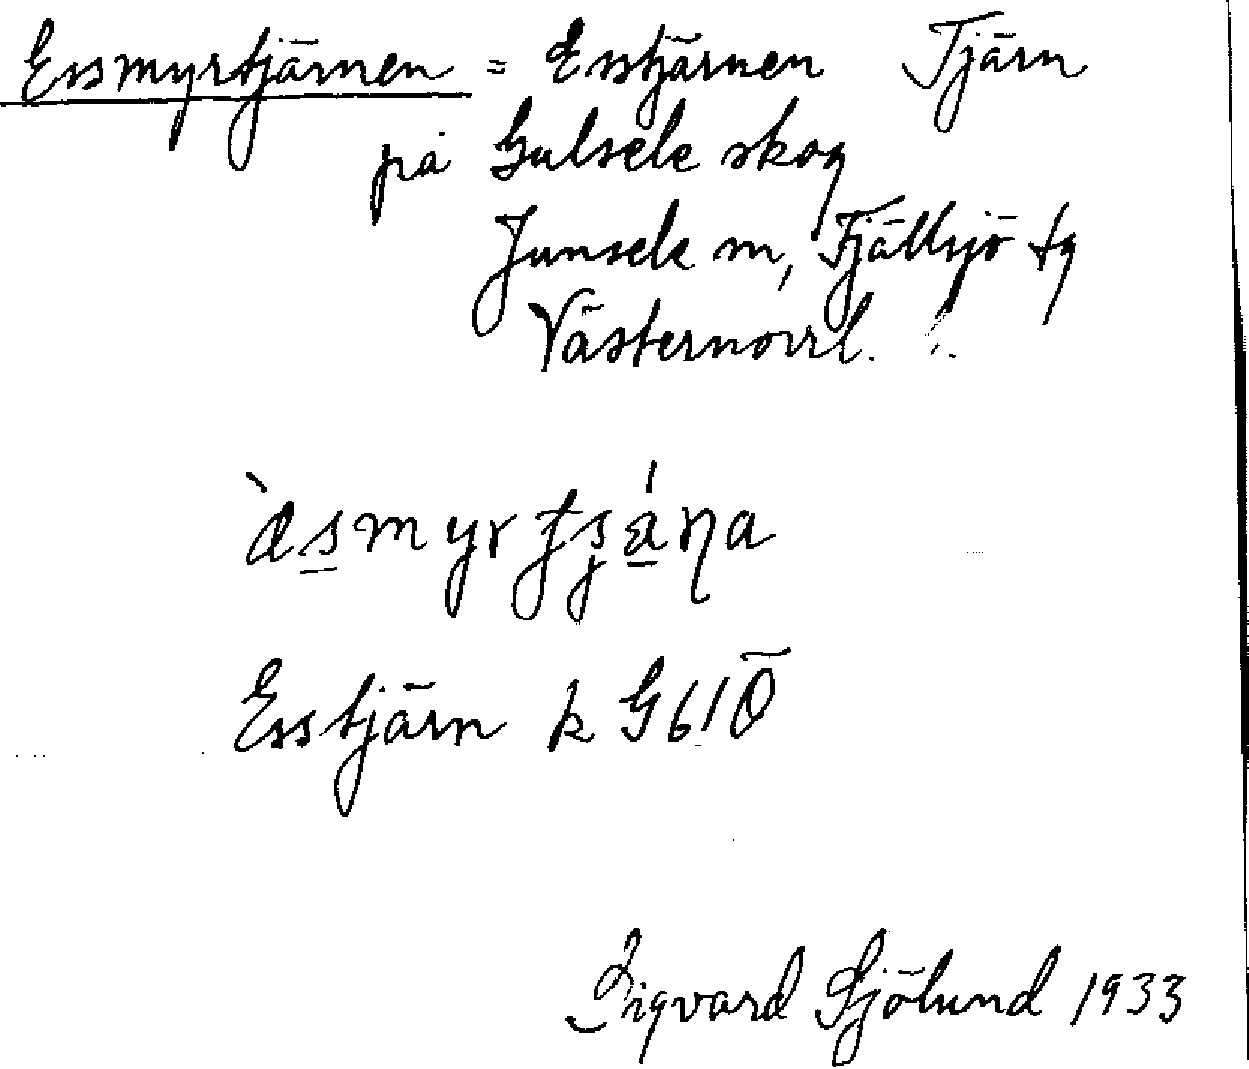 Essmyrtjärnen = Esstjärnen Tjärn
på Gulsele skog
Junsele sn, Fjällsjö tg
Västernorrl.
Esstjärn k G61Ö
Sigvard Sjölund 1933